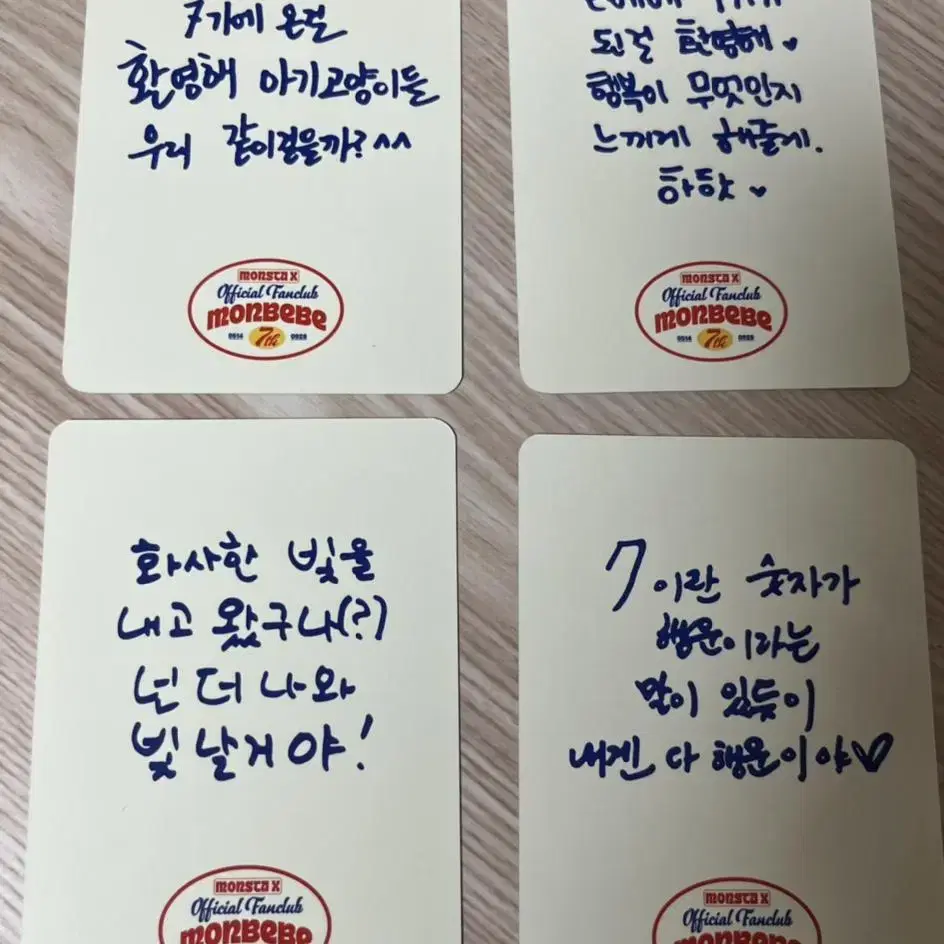 7기에 온걸
환영해 아기고양이들
우리 같이걸을까? ^^
MONSTA X
Official Fanclub
MONBEBE
0514 7th 0828
된걸 환영해 ♥
행복이 무엇인지
느끼게 해줄게.
하핫 ♥
MONSTA X
Official Fanclub
MONBEBE
0514 7th 0828
화사한 빛을
내고 왔구나(?)
넌 더 나와
빛날거야!
MONSTA X
Official Fanclub
MONBEBE
7이란 숫자가
행운이라는
말이 있듯이
내겐 다 행운이야♡
MONSTA X
Official Fanclub
MONBEBE